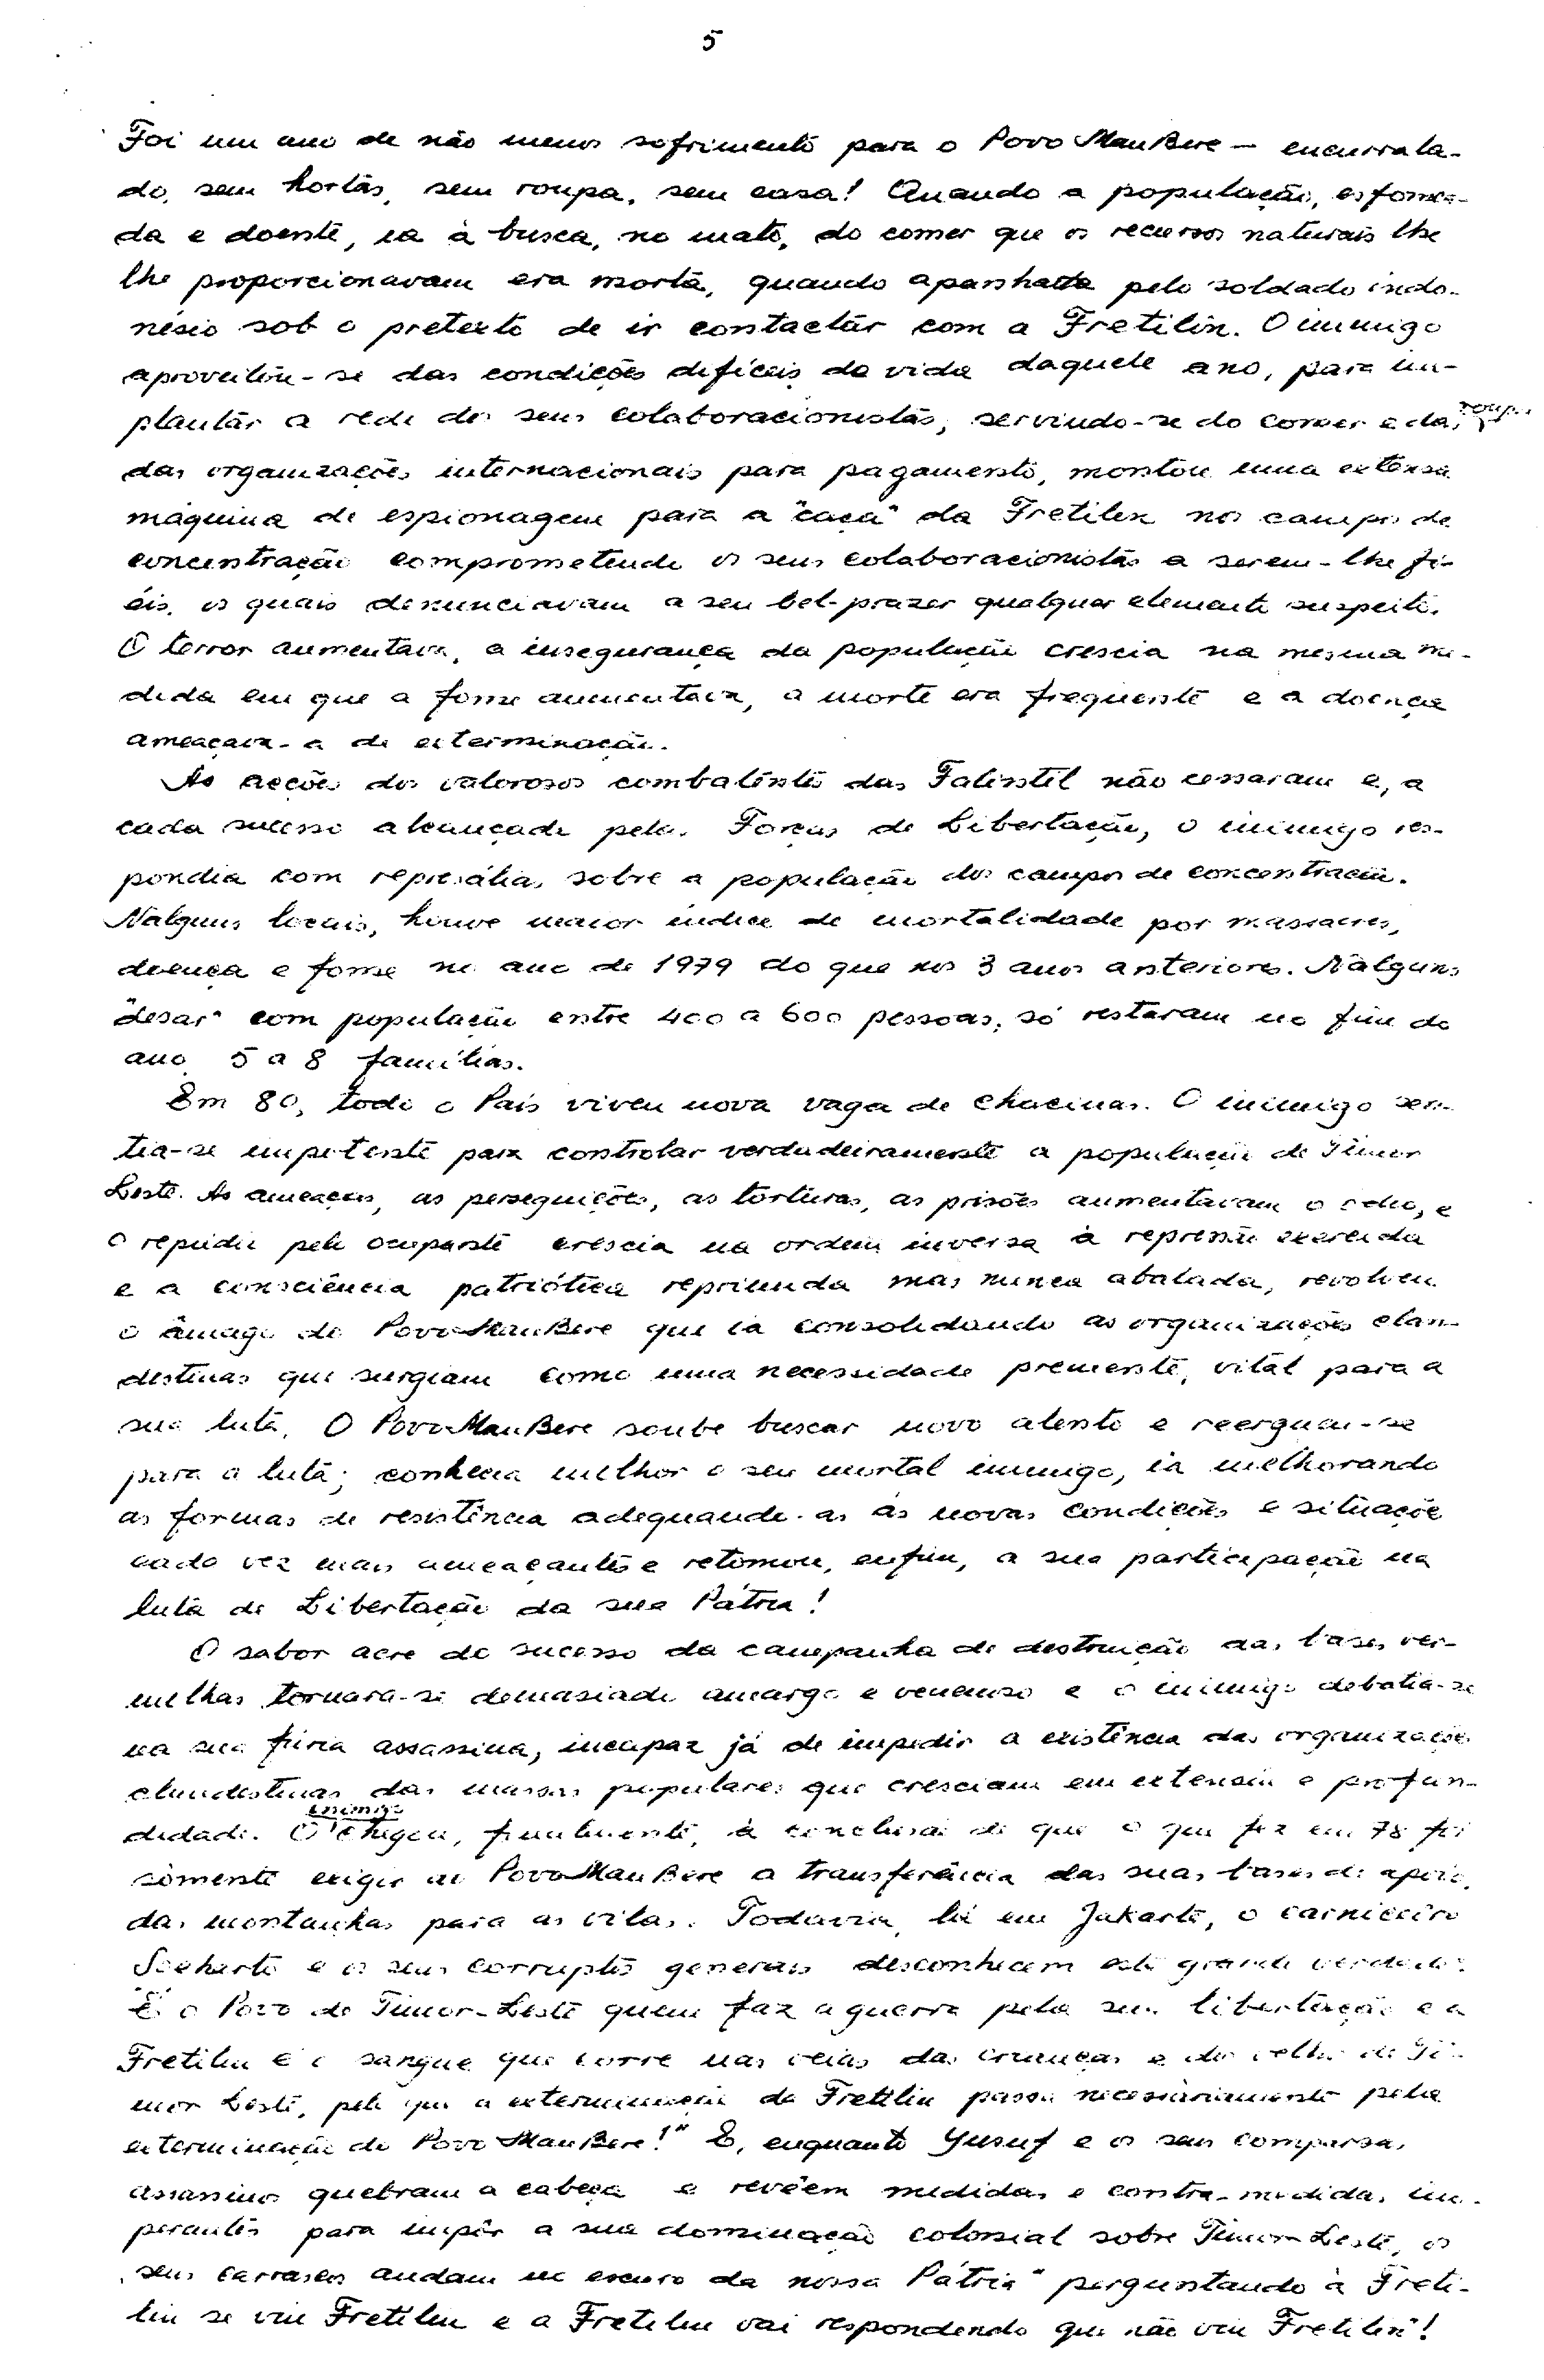 5
Foi um ano de não menos sofrimento para o Povo MauBere — encurrala-
do, sem hortas, sem roupa, sem casa! Quando a população, esfomea-
da e doente, ia à busca, no mato, do comer que os recursos naturais lhe
lhe proporcionavam era morta, quando apanhada pelo soldado indo-
nésio sob o pretexto de ir contactar com a Fretilin. O inimigo
aproveitou-se das condições difíceis da vida daquele ano, para im-
plantar a rede dos seus colaboracionistas, servindo-se do comer e da roupa
das organizações internacionais para pagamento, montou uma extensa
máquina de espionagem para a "caça" da Fretilin nos campos de
concentração comprometendo os seus colaboracionistas a serem-lhe fi-
éis, os quais denunciavam a seu bel-prazer qualquer elemento suspeito.
O terror aumentava, a insegurança da população crescia na mesma me-
dida em que a fome aumentava, a morte era frequente e a doença
ameaçava-a de exterminação.
As acções dos valorosos combatentes das Falintil não cessaram e, a
cada sucesso alcançado pelas Forças de Libertação, o inimigo res-
pondia com represálias sobre a população dos campos de concentração.
Nalguns locais, houve maior índice de mortalidade por massacres,
doença e fome no ano de 1979 do que nos 3 anos anteriores. Nalguns
"desas" com população entre 400 a 600 pessoas, só restaram no fim do
ano 5 a 8 famílias.
Em 80, todo o País viveu nova vaga de chacinas. O inimigo sen-
tia-se impotente para controlar verdadeiramente a população de Timor
Leste. As ameaças, as perseguições, as torturas, as prisões aumentavam o ódio, e
o repúdio pelo ocupante crescia na ordem inversa à repressão exercida
e a consciência patriótica reprimida mas nunca abalada, revolveu
o âmago do Povo MauBere que ia consolidando as organizações clan-
destinas que surgiam como uma necessidade premente, vital para a
sua luta. O Povo MauBere soube buscar novo alento e reerguer-se
para a luta; conhecia melhor o seu mortal inimigo, ia melhorando
as formas de resistência adequando-as às novas condições e situaçõe
cada vez mais ameaçantes e retomou, enfim, a sua participação na
luta de Libertação da sua Pátria!
O sabor acre do sucesso da campanha de destruição das bases ver-
melhas tornara-se demasiado amargo e venenoso e o inimigo debatia-se
na sua fúria assassina, incapaz já de impedir a existência das organizações
clandestinas das massas populares que cresciam em extensão e profun-
didade. O inimigo chegou, finalmente, à conclusão de que o que fez em 78 foi
sòmente exigir ao Povo MauBere a transferência das suas bases de apoio,
das montanhas para as vilas. Todavia, lá em Jakarta, o carniceiro
Soeharto e os seus corruptos generais desconhecem esta grande verdade:
"É o Povo de Timor-Leste quem faz a guerra pela sua libertação e a
Fretilin é o sangue que corre nas veias das crianças e dos velhos de Ti-
mor Leste, pelo que a exterminação da Fretilin passa necessàriamente pela
exterminação do Povo MauBere!" E, enquanto Yusuf e os seus comparsas
assassinos quebram a cabeça e revêem medidas e contra-medidas im-
perantes para impôr a sua dominação colonial sobre Timor-Leste, os
seus carrascos andam no escuro da nossa Pátria "perguntando à Freti-
lin se viu Fretilin e a Fretilin vai respondendo que não viu Fretilin"!